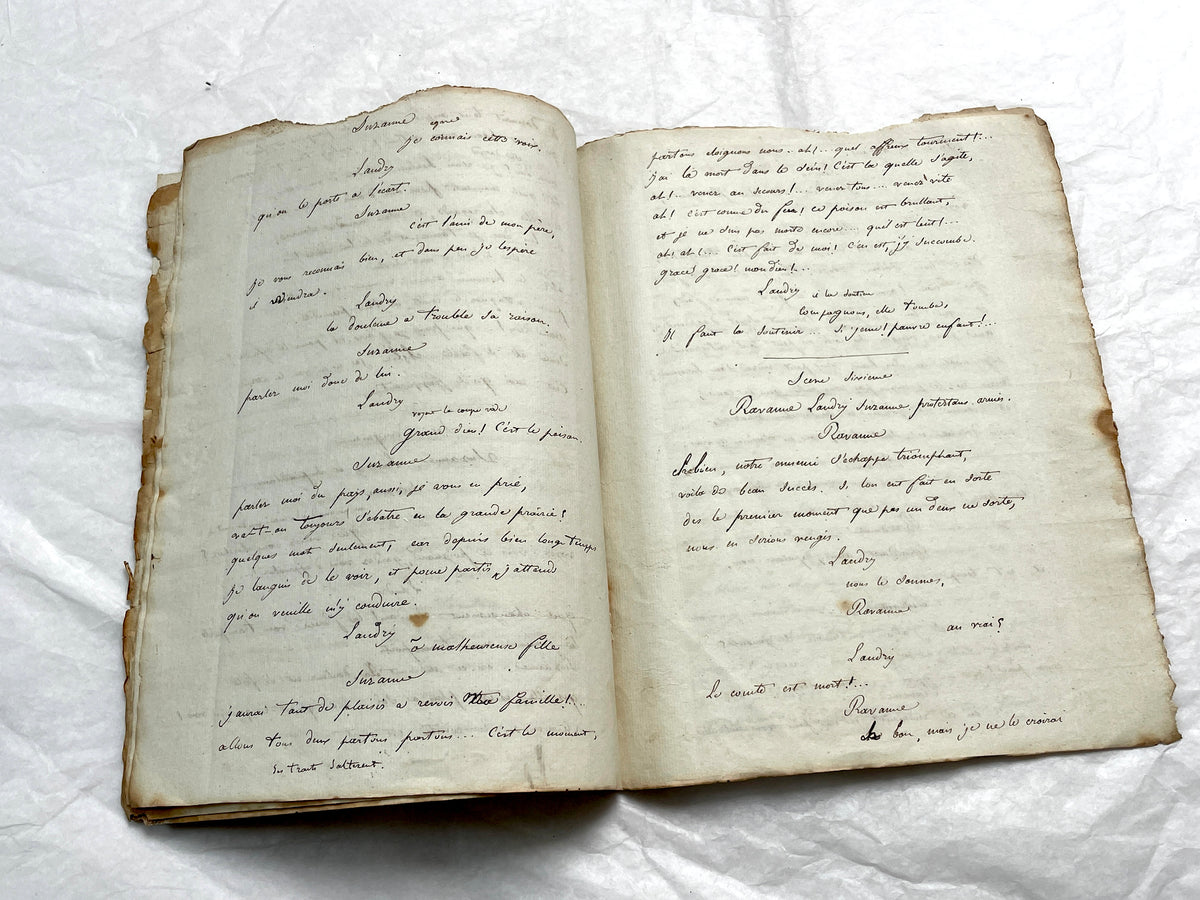 Suzanne
je connais cette voix.
Landry
qu'on le porte a l'écart.
Suzanne
c'est l'ami de mon père,
je vous reconnais bien, et dans peu, je l'espère
il viendra.
Landry
la douleur a troublé sa raison.
Suzanne
parlez moi donc de lui.
Landry
voyant la coupe vide
grand dieu! C'est le poison.
Suzanne
parlez moi du pays, aussi, je vous en prie,
va-t-on toujours s'ebatre en la grande prairie?
quelques mot seulement, car depuis bien longtemps
je languis de le voir, et pour partir, j'attend
qu'on veuille m'y conduire.
Landry
ô malheureuse fille
Suzanne
j'aurai tant de plaisir a revoir Ma famille!...
allons tous deux partons partons... C'est le moment,
Ses traits s'altèrent.
partons eloignons nous. ah!... quel affreux tourment!...
j'ai la mort dans le sein! C'est la quelle s'agite,
ah!.. venez au secours!... venez tous... venez vite
ah! c'est comme du feu! ce poison est brullant,
et je ne suis pas morte encore.... qu'il est lent!...
ah! ah!... C'est fait de moi! C'en est, j'y succombe.
grace! grace! mon dieu!...
Landry il la soutien
Compagnons, elle tombe,
Il faut la soutenir... Si jeune! pauvre enfant!...
Scene Sixieme
Ravanne Landry Suzanne, protestans armés.
Ravanne
He bien, notre ennemi s'échappe triomphant,
voila de beau succès. Si lon eut fait en sorte
des le premier moment que pas un d'eux ne sorte,
nous en serions vengés.
Landry
nous le sommes,
Ravanne
au vrai?
Landry
Le comte est mort!...
Ravanne
bon, mais je ne le croirai